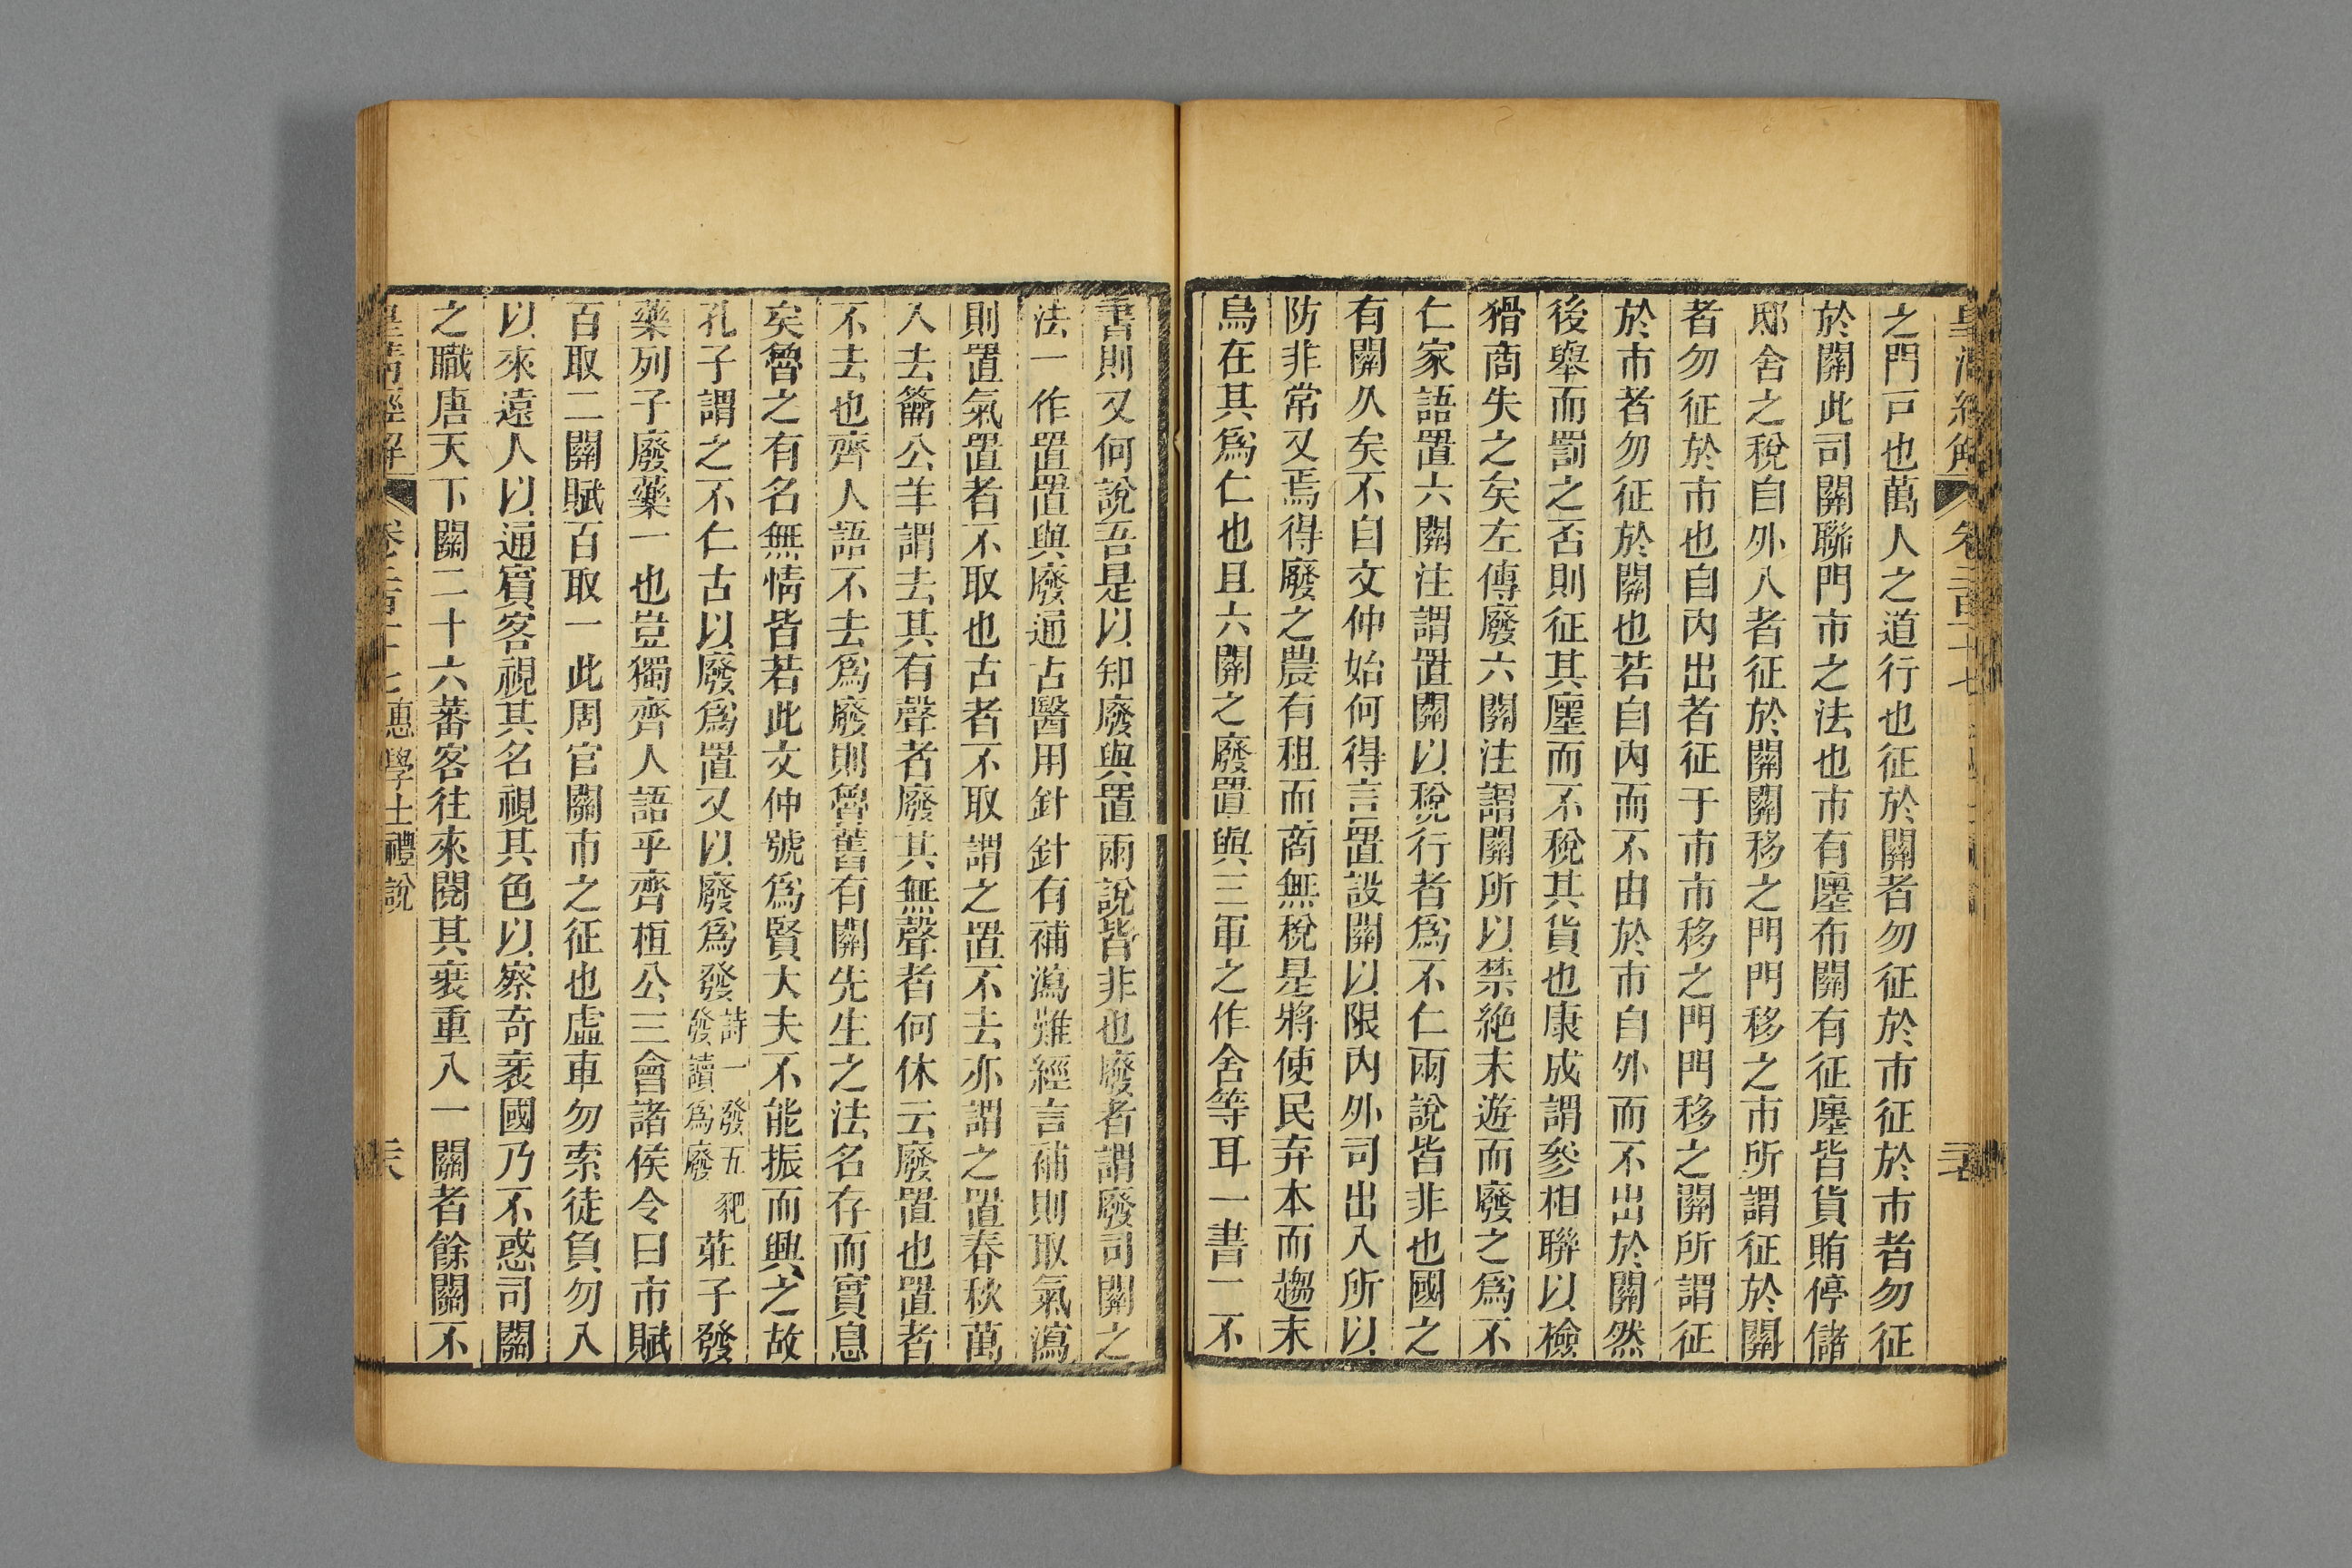 之門戸也萬人之道行也征於關者勿征於市征於市者勿征
於關此司關聯門市之法也市有廛布關有征廛皆貨賄停儲
邸舍之稅自外入者征於關關移之門門移之市所謂征於關
者勿征於市也自內出者征于市市移之門門移之關所謂征
於市者勿征於關也若自內而不由於市自外而不出於關然
後舉而罰之否則征其廛而不稅其貨也康成謂參相聯以檢
猾商失之矣左傳廢六關注謂關所以禁絶末遊而廢之爲不
仁家語置六關注謂置關以稅行者爲不仁兩說皆非也國之
有關久矣不自文仲始何得言置設關以限內外司出入所以
防非常又焉得廢之農有租而商無稅是將使民弃本而趨末
烏在其爲仁也且六關之廢置與三軍之作舍等耳一書一不
書則又何說吾是以知廢與置兩說皆非也廢者謂廢司關之
法一作置置與廢通古醫用針針有補瀉難經言補則取氣瀉
則置氣置者不取也古者不取謂之置不去亦謂之置春秋萬
入去籥公羊謂去其有聲者廢其無聲者何休云廢置也置者
不去也齊人語不去爲廢則魯舊有關先生之法名存而實息
矣魯之有名無情皆若此文仲號爲賢大夫不能振而興之故
孔子謂之不仁古以廢爲置又以廢爲發詩一發五豝發讀爲廢莊子發
藥列子廢藥一也豈獨齊人語乎齊桓公三會諸侯令曰市賦
百取二關賦百取一此周官關市之征也虛車勿索徒負勿入
以來遠人以通賓客視其名視其色以察奇衺國乃不惑司關
之職唐天下關二十六蕃客往來閱其裝重入一關者餘關不
皇清經解 卷二百十七 惠學士禮說 天